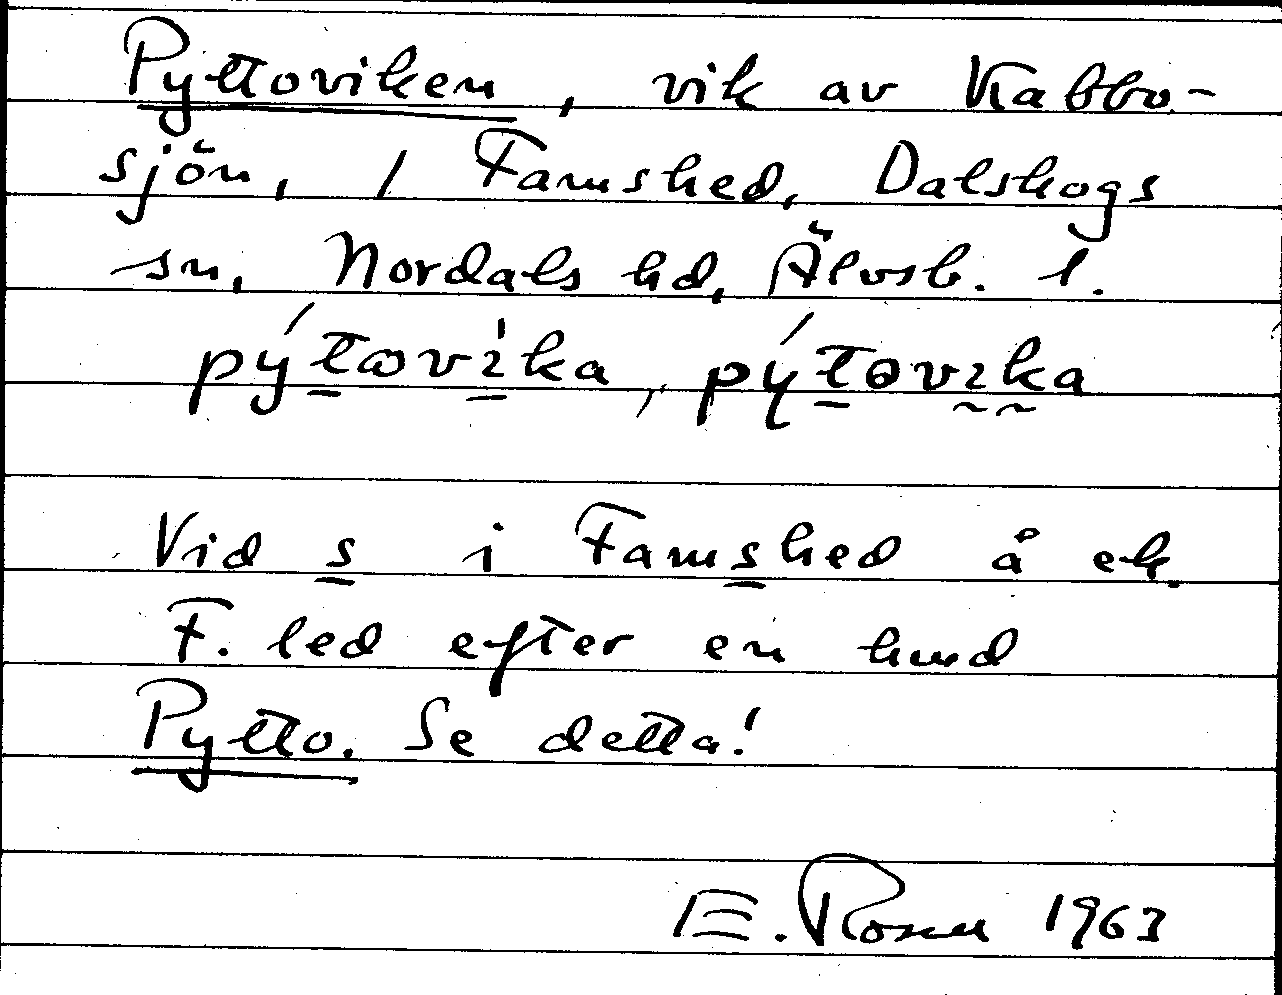 Pyttoviken, vik av Kabbo-
sjön, i Famshed, Dalskogs
sn, Nordals hd, Älvsb. l.
pýtωvìka, pýtovıka
Vid s i Famshed å ek.
F. led efter en hund
Pytto. Se detta!
E. Rosell 1963